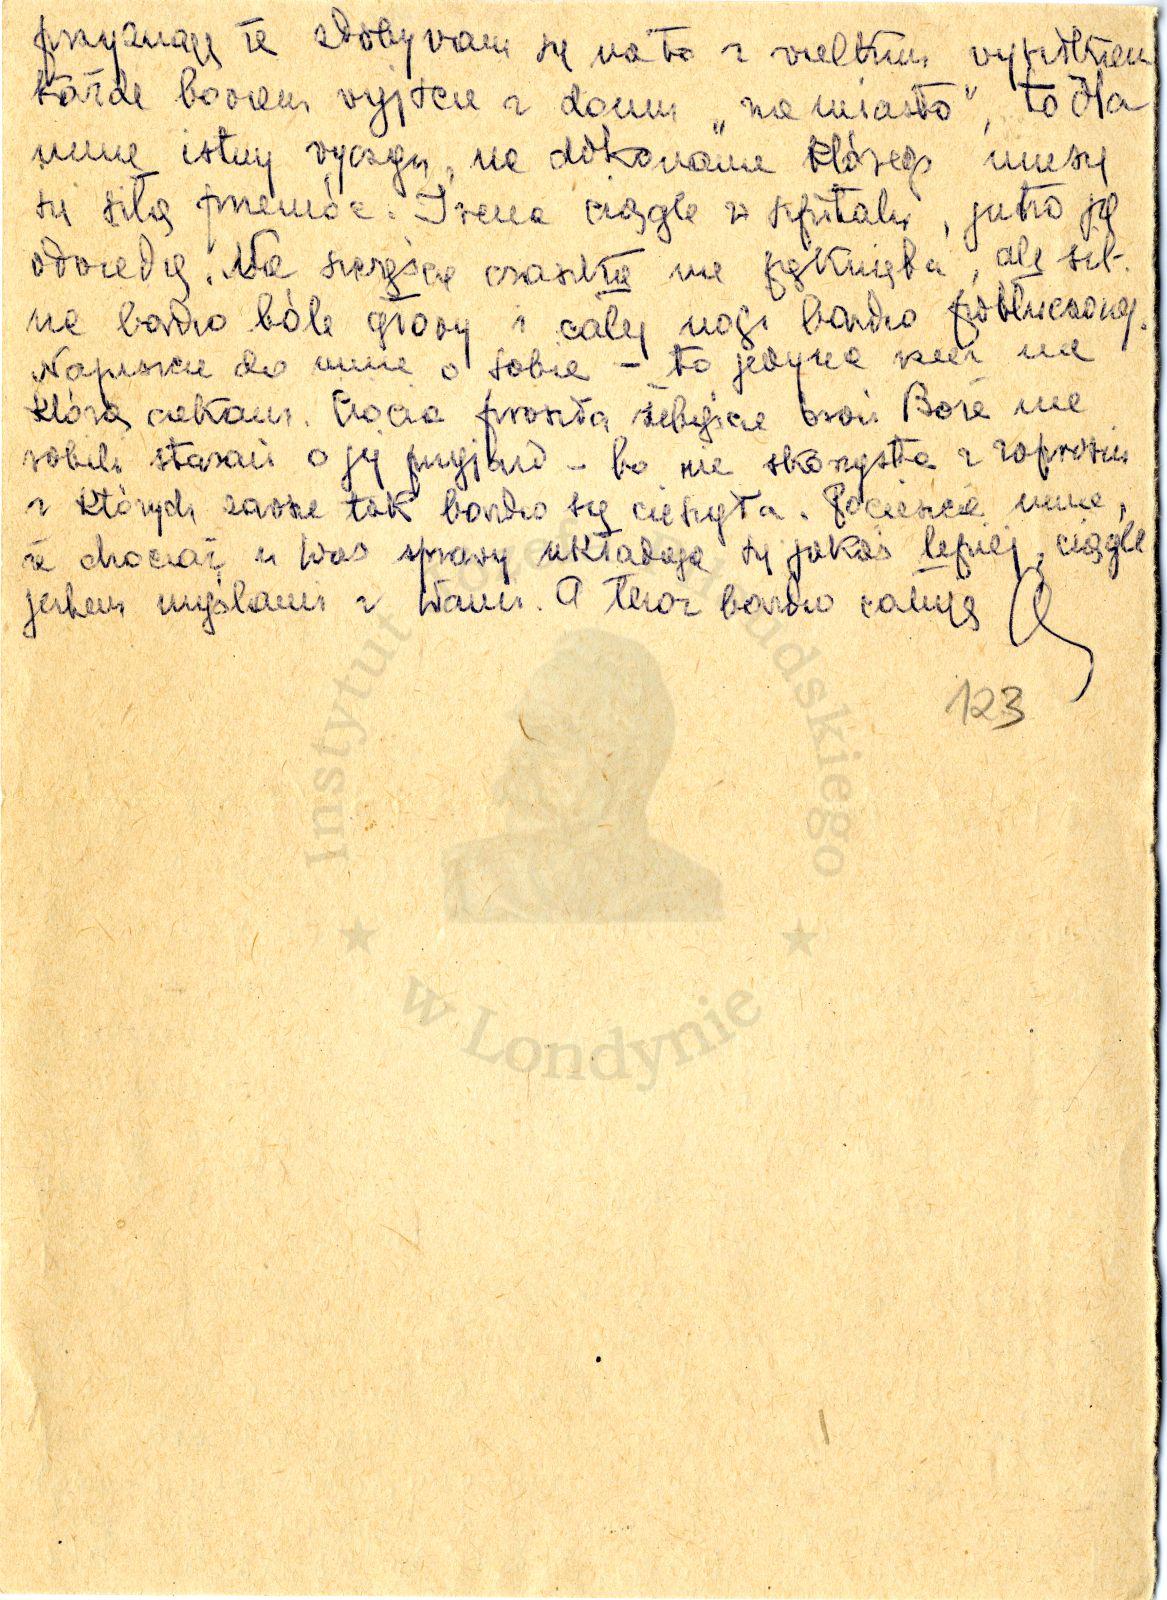 przyznaję że zdobywam się na to z wielkim wysiłkiem
każde bowiem wyjście z domu „na miasto”, to dla
mnie istny wyczyn, na dokonanie którego muszę
się siłą przemóc. Irena ciągle w szpitalu, jutro ją
odwiedzę. Na szczęście czaszka nie pęknięta, ale sil-
ne bardzo bóle głowy i całej nogi bardzo potłuczonej.
Napiszcie do mnie o sobie – to jedyna rzecz na
którą czekam. Ciocia prosiła żebyście broń Boże nie
robili starań o jej przyjazd – bo nie skorzysta z zaprosin
z których zawsze tak bardzo się cieszyła. Pocieszcie mnie,
że chociaż u Was sprawy układają się jakoś lepiej, ciągle
jestem myślami z Wami. A teraz bardzo całuję
123
Instytut Józefa Piłsudskiego
w Londynie